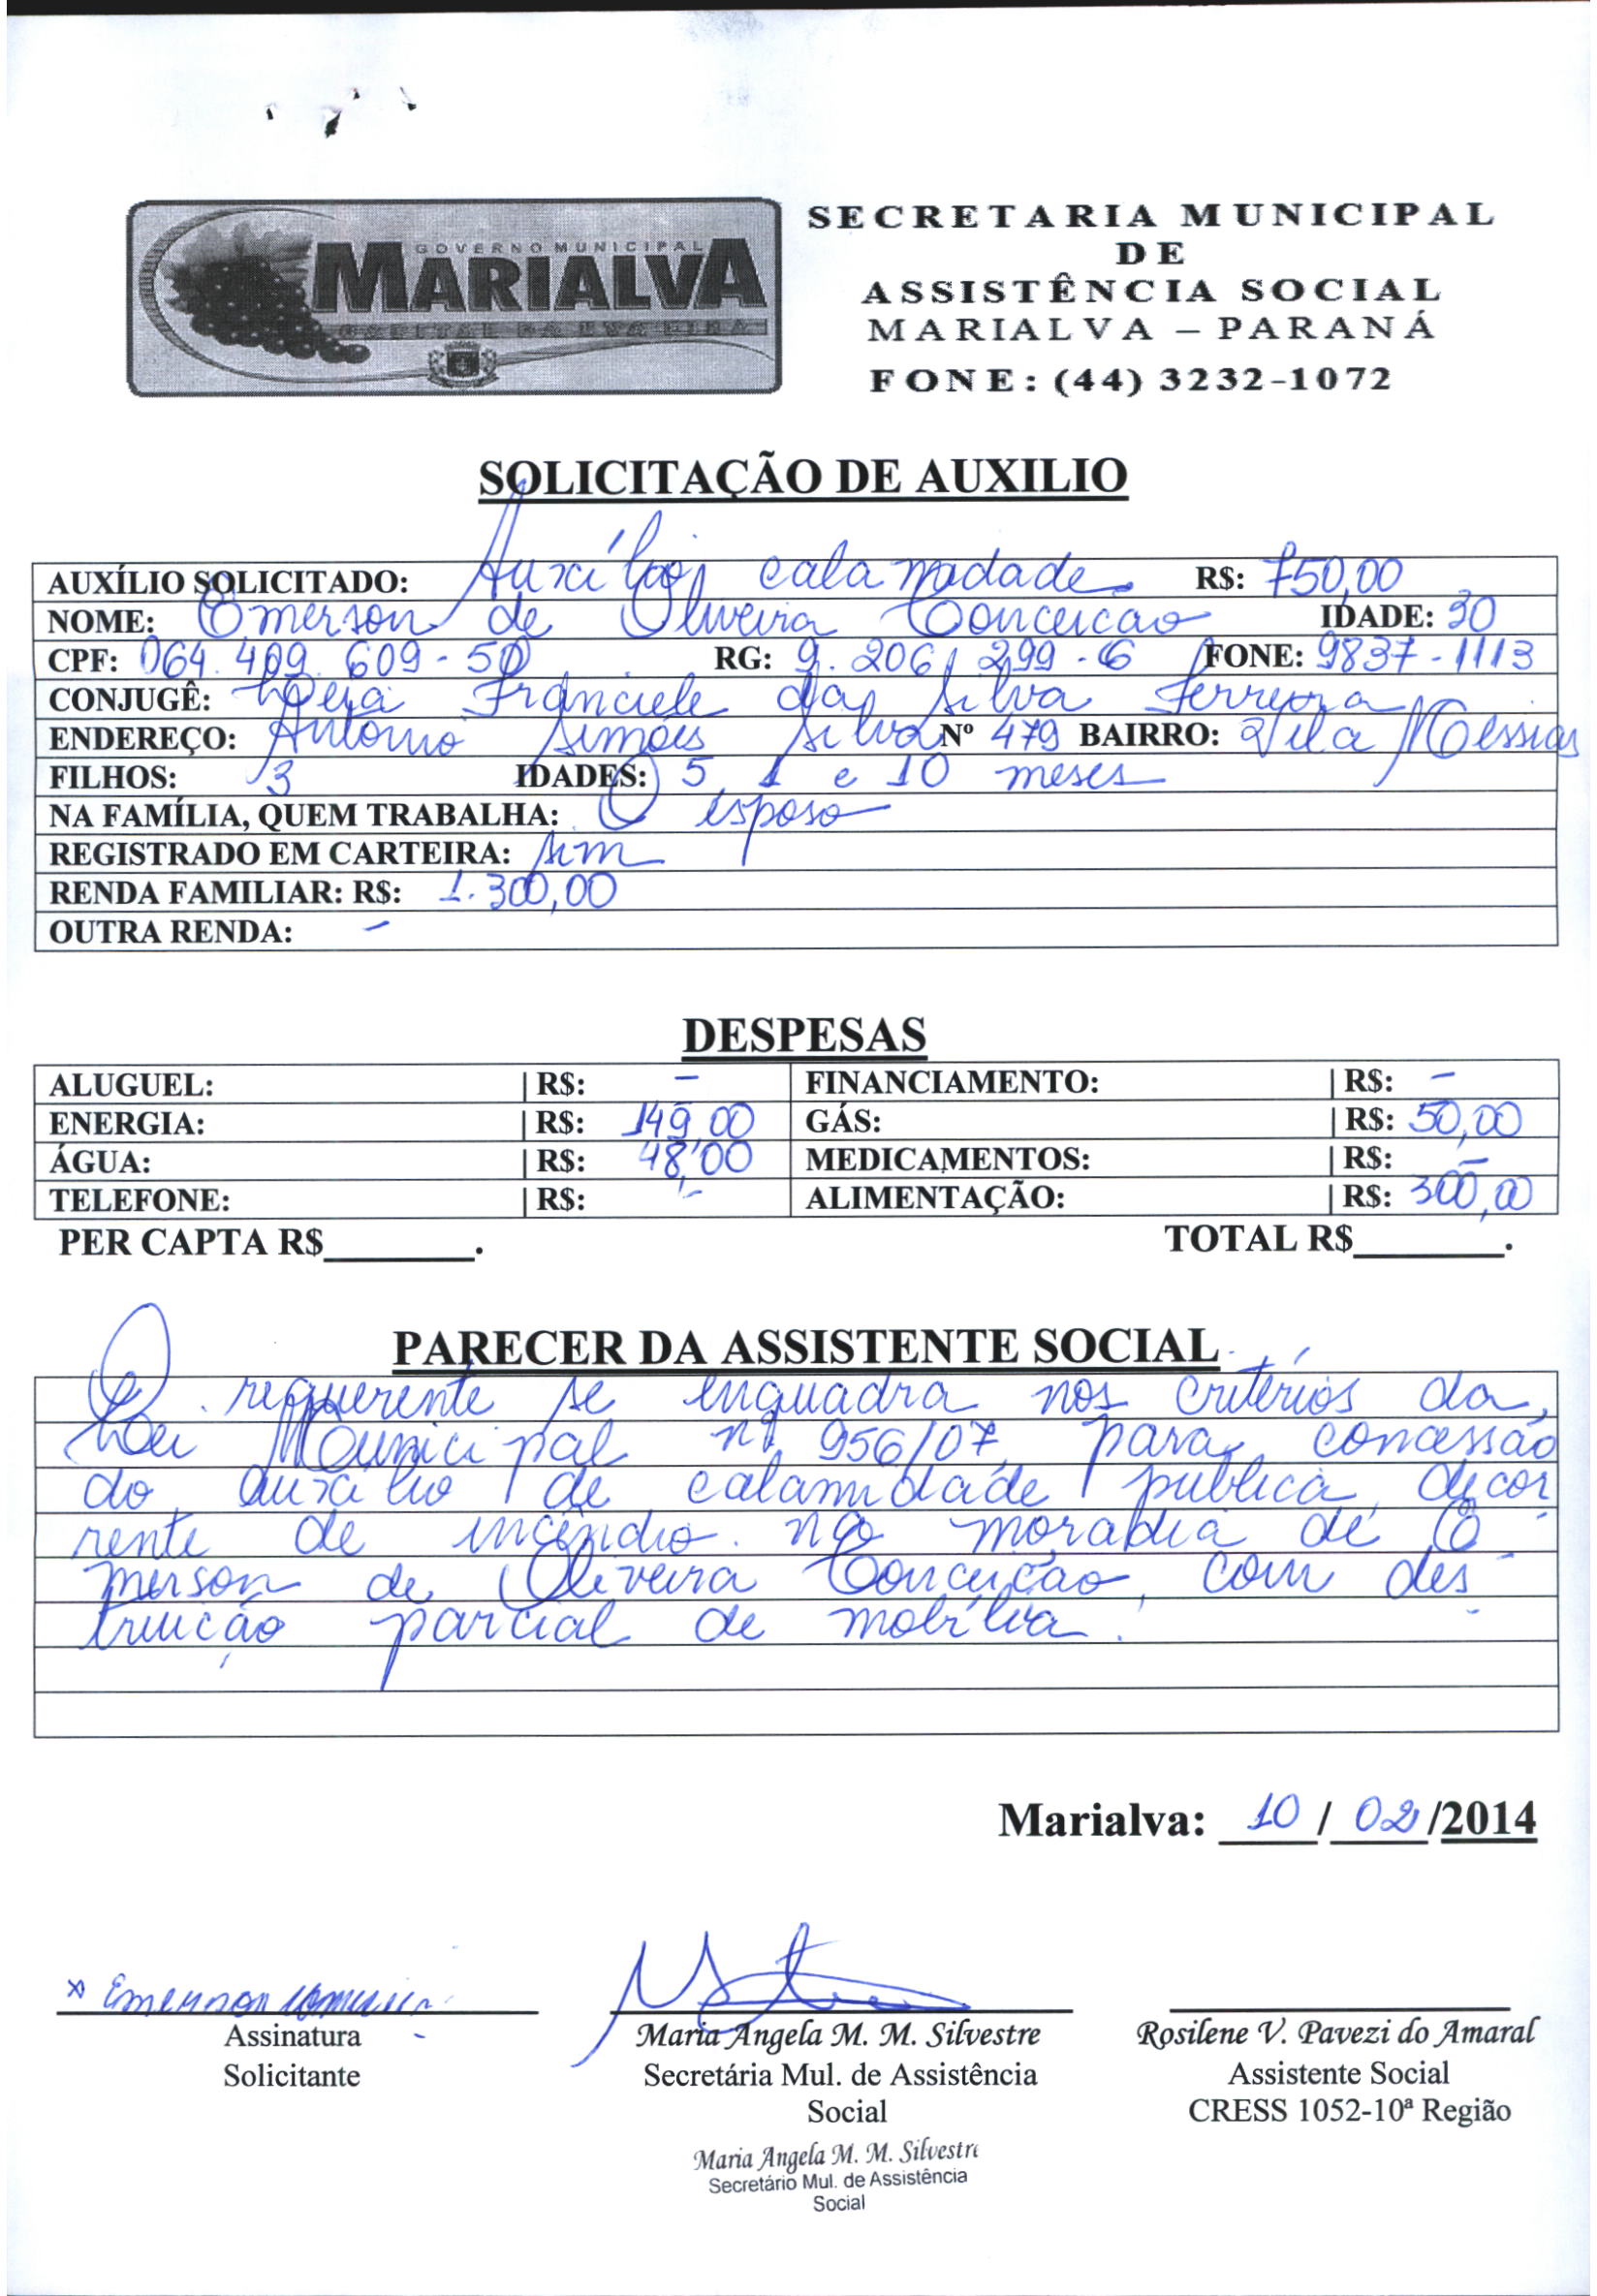 GOVERNO MUNICIPAL
MARIALVA
CAPITAL DA UVA FINA
SECRETARIA MUNICIPAL
DE
ASSISTÊNCIA SOCIAL
MARIALVA – PARANÁ
FONE: (44) 3232-1072
SOLICITAÇÃO DE AUXILIO
AUXÍLIO SOLICITADO: Auxílio calamidade. R$: 750,00
NOME: Emerson de Oliveira Conceicao IDADE: 30
CPF: 064.409.609-50 RG: 9.206.299-6 FONE: 9837-1113
CONJUGÊ: Franciele da Silva Ferreira
ENDEREÇO: Antonio Simões Silva Nº 479 BAIRRO: Vila Messias
FILHOS: 3 IDADES: 5, 1 e 10 meses
NA FAMÍLIA, QUEM TRABALHA: O esposo
REGISTRADO EM CARTEIRA: sim
RENDA FAMILIAR: R$: 1.300,00
OUTRA RENDA: -
DESPESAS
ALUGUEL: | R$: - FINANCIAMENTO: | R$: -
ENERGIA: | R$: 149,00 GÁS: | R$: 50,00
ÁGUA: | R$: 48,00 MEDICAMENTOS: | R$: -
TELEFONE: | R$: - ALIMENTAÇÃO: | R$: 300,00
PER CAPTA R$________. TOTAL R$________.
PARECER DA ASSISTENTE SOCIAL
O requerente se enquadra nos critérios da
Lei Municipal nº 956/07, para concessão
do auxílio de calamidade pública, decor
rente de incêndio na moradia de E-
merson de Oliveira Conceição, com des-
truição parcial de mobília.
Marialva: 10 / 02 /2014
x Emerson
Assinatura
Solicitante
Maria Angela M. M. Silvestre
Secretária Mul. de Assistência
Social
Maria Angela M. M. Silvestre
Secretário Mul. de Assistência
Social
Rosilene V. Pavezi do Amaral
Assistente Social
CRESS 1052-10ª Região